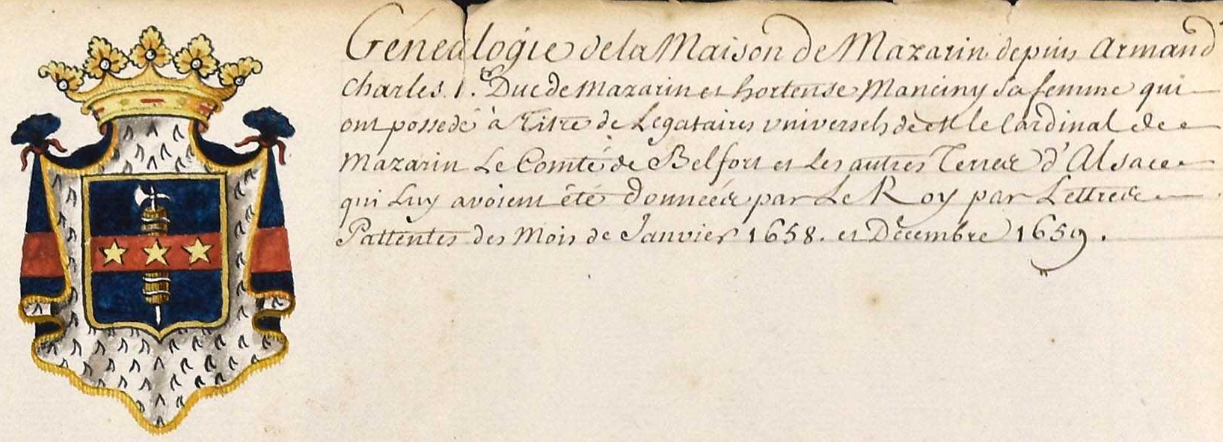 Généalogie de la Maison de Mazarin depuis Armand
Charles 1.er Duc de Mazarin et hortense Manciny sa femme qui
ont possedé à Titre de Legataires universels de le Cardinal de
Mazarin Le Comté de Belfort et Les autres Terres d'Alsace
qui Luy avoient été Données par Le Roy par Lettres
Pattentes des Mois de Janvier 1658. et Décembre 1659.